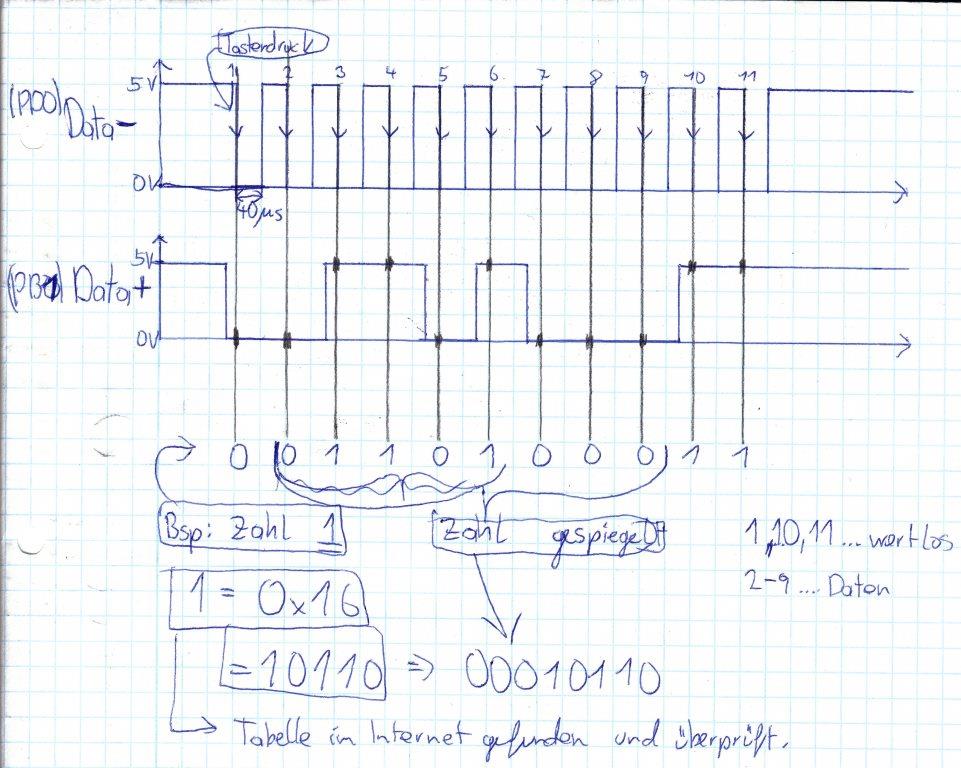 Tasterdruck
1 2 3 4 5 6 7 8 9 10 11
5V
(PD0) Data-
0V
40µs
5V
Data+
0V
0 0 1 1 0 1 0 0 0 1 1
Bsp: Zahl 1
Zahl gespiegelt
1,10,11... wertlos
1 = 0x16
2-9... Daten
=10110 => 00010110
Tabelle im Internet gefunden und überprüft.